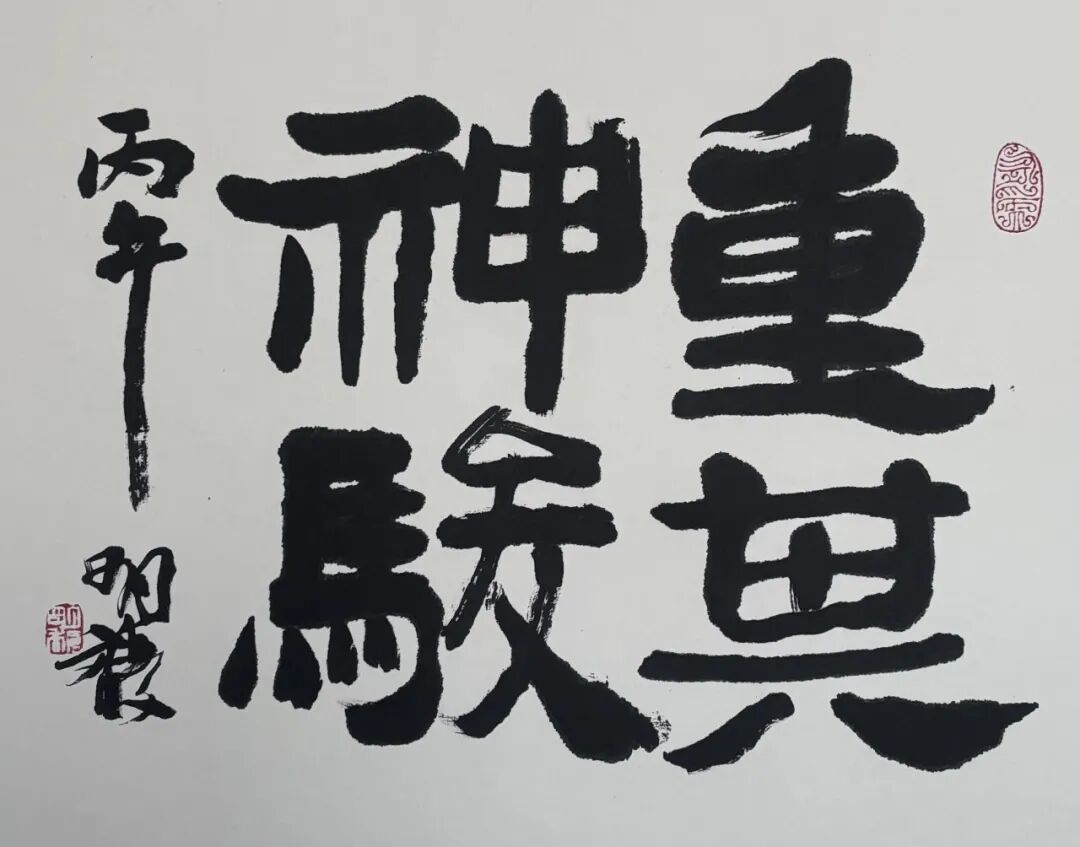 重其
神駿
丙午 明